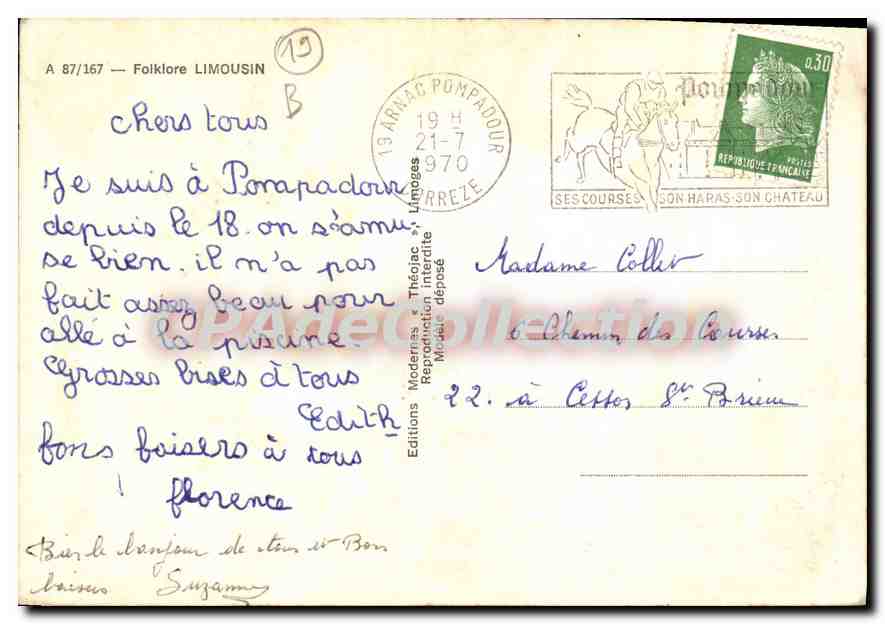 A 87/167 — Folklore LIMOUSIN
19
B
chers tous
Je suis à Pompadour
depuis le 18. on s'amu-
se bien. il n'a pas
fait assez beau pour
allé à la piscine.
Grosses bises à tous
Edith
bons baisers à tous
florence
Bien le bonjour de tous et Bons
baisers Suzanne
Editions Modernes « Théojac », Limoges
Reproduction interdite
Modèle déposé
19 ARNAC POMPADOUR
19 H
21-7
1970
CORREZE
Pompadour
SES COURSES SON HARAS-SON CHATEAU
0,30
POSTES
REPUBLIQUE FRANCAISE
Madame Collet
6 Chemin des Courses
22. à Cesson St Brieuc
CPAdeCollection